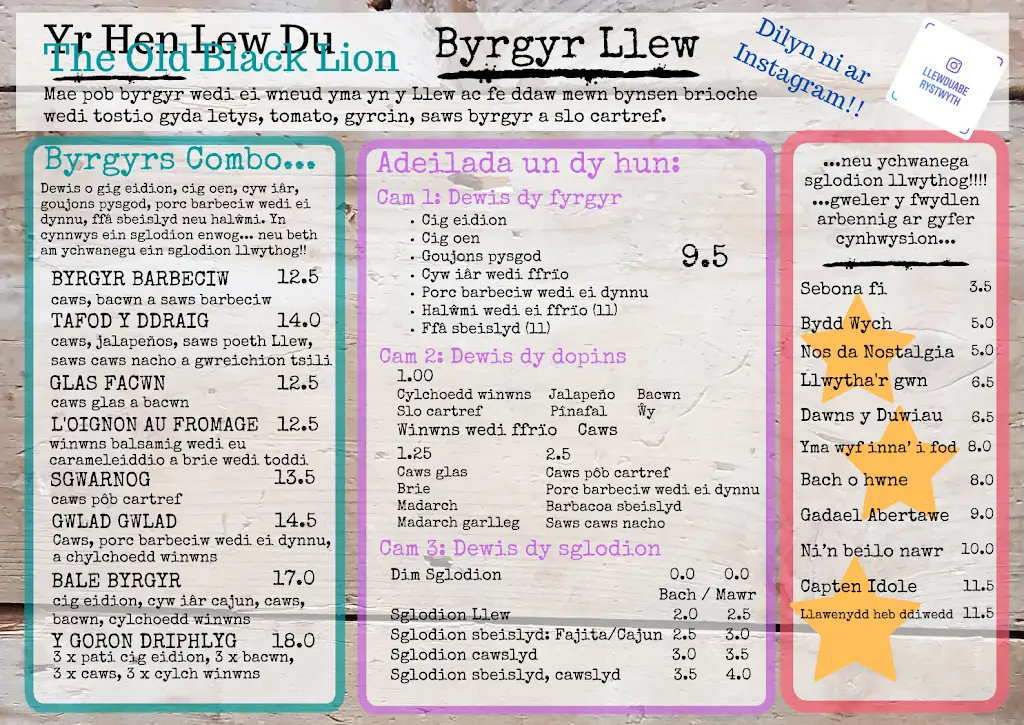 Yr Hen Lew Du
The Old Black Lion
Byrgyr Llew
Dilyn ni ar
Instagram!!
LLEWDUABE
RYSTWYTH
Mae pob byrgyr wedi ei wneud yma yn y Llew ac fe ddaw mewn bynsen brioche
wedi tostio gyda letys, tomato, gyrcin, saws byrgyr a slo cartref.
Byrgyrs Combo...
Dewis o gig eidion, cig oen, cyw iâr,
goujons pysgod, porc barbeciw wedi ei
dynnu, ffâ sbeislyd neu halŵmi. Yn
cynnwys ein sglodion enwog... neu beth
am ychwanegu ein sglodion llwythog!!
BYRGYR BARBECIW 12.5
caws, bacwn a saws barbeciw
TAFOD Y DDRAIG 14.0
caws, jalapeños, saws poeth Llew,
saws caws nacho a gwreichion tsili
GLAS FACWN 12.5
caws glas a bacwn
L'OIGNON AU FROMAGE 12.5
winwns balsamig wedi eu
carameleiddio a brie wedi toddi
SGWARNOG 13.5
caws pôb cartref
GWLAD GWLAD 14.5
Caws, porc barbeciw wedi ei dynnu,
a chylchoedd winwns
BALE BYRGYR 17.0
cig eidion, cyw iâr cajun, caws,
bacwn, cylchoedd winwns
Y GORON DRIPHLYG 18.0
3 x pati cig eidion, 3 x bacwn,
3 x caws, 3 x cylch winwns
Adeilada un dy hun:
Cam 1: Dewis dy fyrgyr
• Cig eidion
• Cig oen
• Goujons pysgod
• Cyw iâr wedi ffrïo
• Porc barbeciw wedi ei dynnu
• Halŵmi wedi ei ffrïo (ll)
• Ffâ sbeislyd (ll)
9.5
Cam 2: Dewis dy dopins
1.00
Cylchoedd winwns Jalapeño Bacwn
Slo cartref Pinafal Ŵy
Winwns wedi ffrïo Caws
1.25 2.5
Caws glas Caws pôb cartref
Brie Porc barbeciw wedi ei dynnu
Madarch Barbacoa sbeislyd
Madarch garlleg Saws caws nacho
Cam 3: Dewis dy sglodion
Dim Sglodion 0.0 0.0
Bach / Mawr
Sglodion Llew 2.0 2.5
Sglodion sbeislyd: Fajita/Cajun 2.5 3.0
Sglodion cawslyd 3.0 3.5
Sglodion sbeislyd, cawslyd 3.5 4.0
...neu ychwanega
sglodion llwythog!!!!
...gweler y fwydlen
arbennig ar gyfer
cynhwysion...
Sebona fi 3.5
Bydd Wych 5.0
Nos da Nostalgia 5.0
Llwytha'r gwn 6.5
Dawns y Duwiau 6.5
Yma wyf inna' i fod 8.0
Bach o hwne 8.0
Gadael Abertawe 9.0
Ni'n beilo nawr 10.0
Capten Idole 11.5
Llawenydd heb ddiwedd 11.5